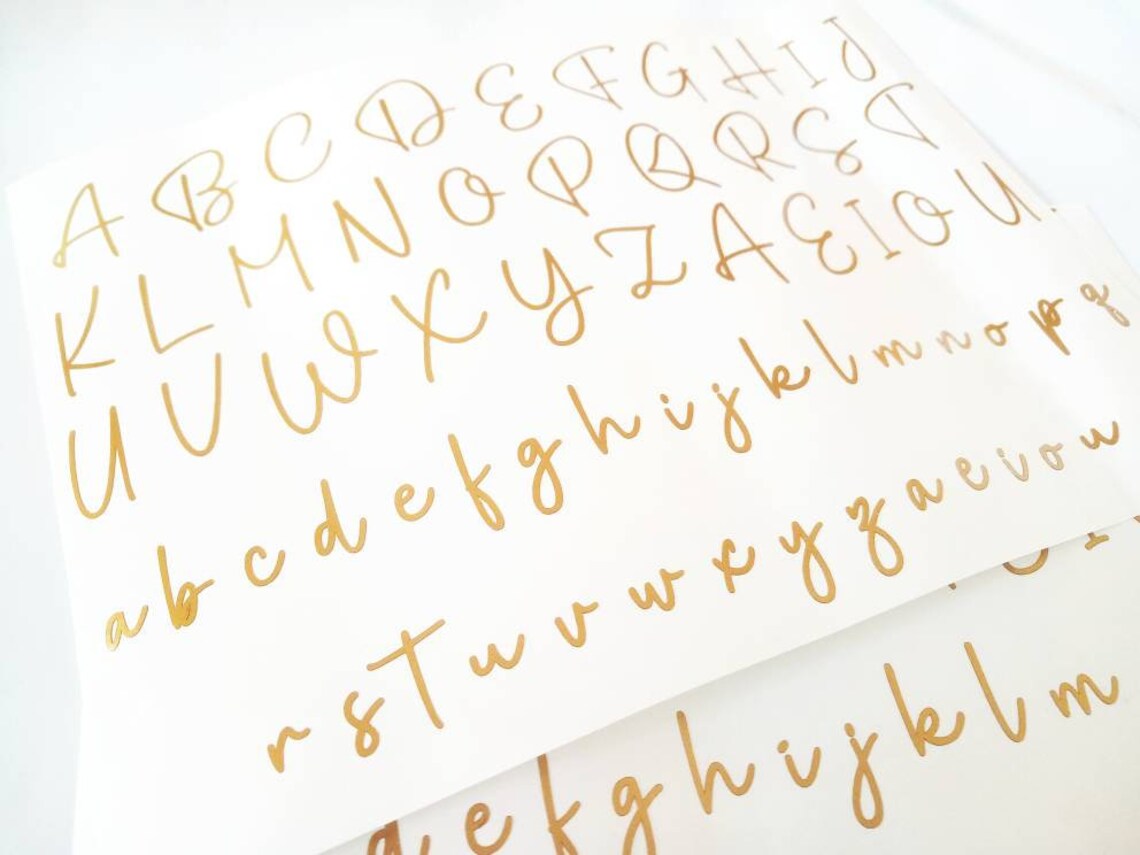 A B C D E F G H I J
K L M N O P Q R S T
U V W X Y Z A E I O U
a b c d e f g h i j k l m n o p q
r s T u v w x y z a e i o u
e f g h i j k l m